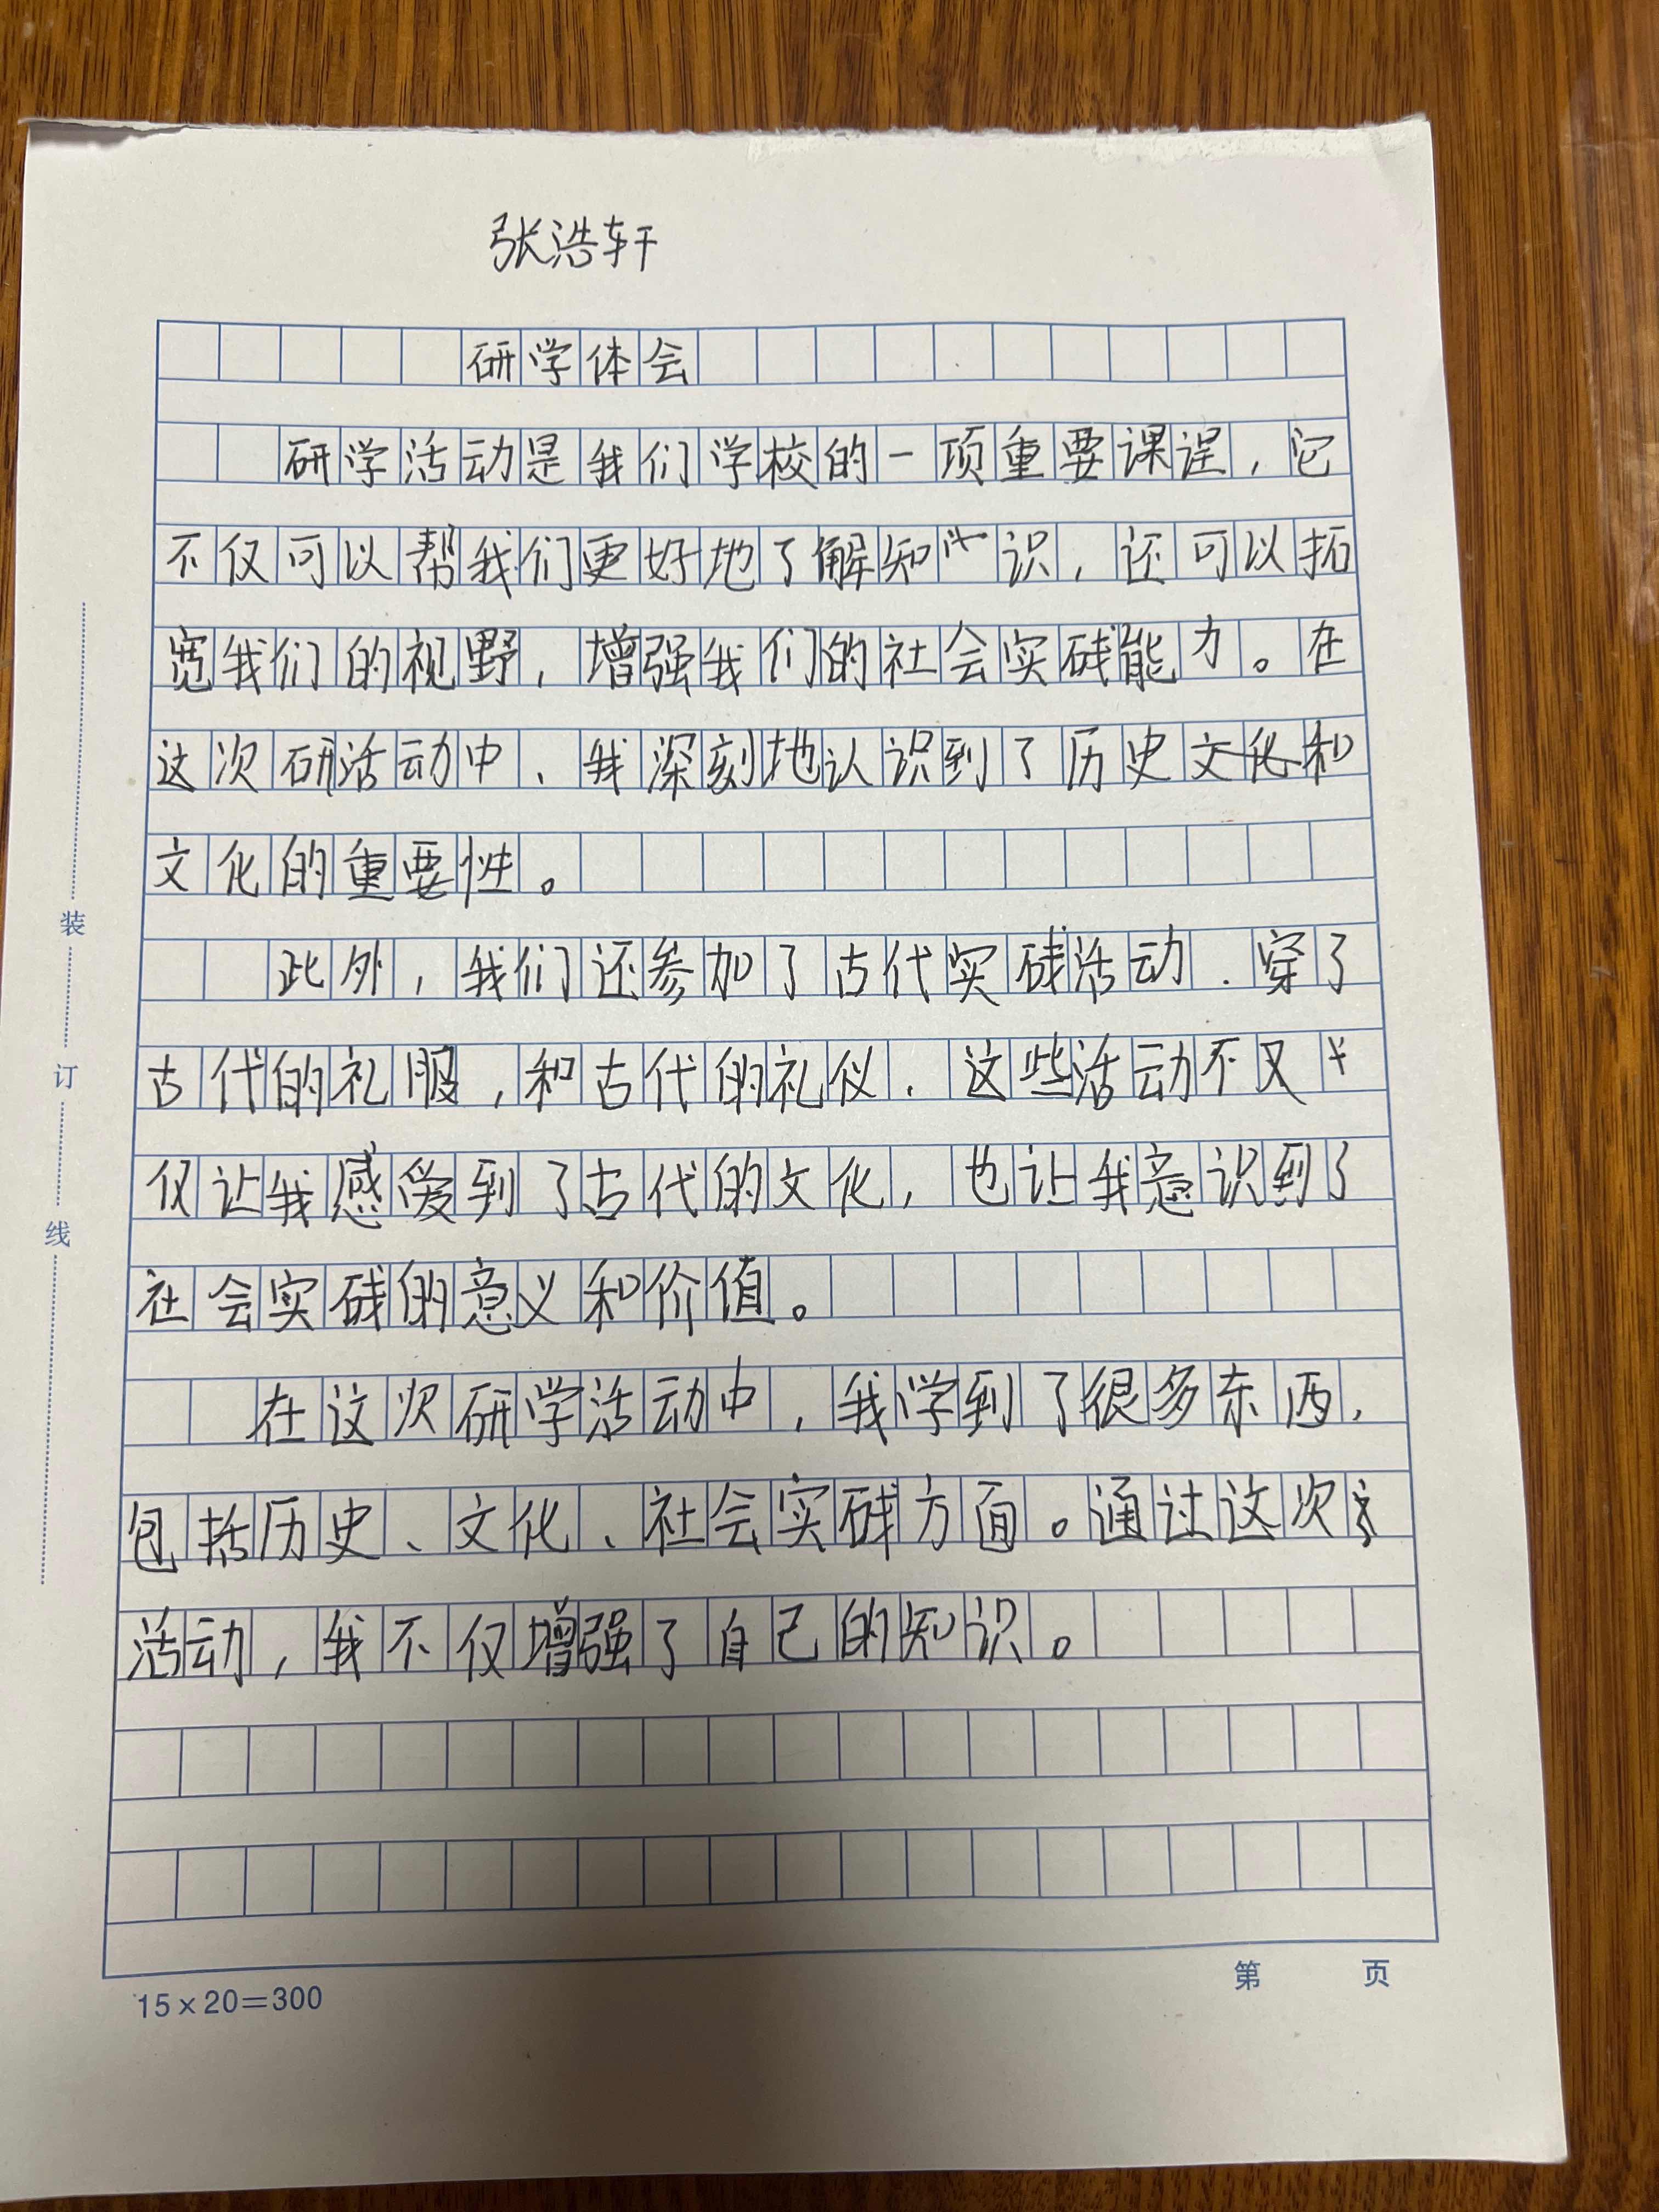 张浩轩
研学体会
研学活动是我们学校的一项重要课程，它
不仅可以帮我们更好地了解知识，还可以拓
宽我们的视野，增强我们的社会实践能力。在
这次研活动中、我深刻地认识到了历史文化和
文化的重要性。
此外，我们还参加了古代实践活动．穿了
古代的礼服，和古代的礼仪．这些活动不又
仅让我感受到了古代的文化，也让我意识到了
社会实践的意义和价值。
在这次研学活动中，我学到了很多东西，
包括历史、文化、社会实践方面。通过这次
活动，我不仅增强了自己的知识。
装
订
线
15×20=300
第 页